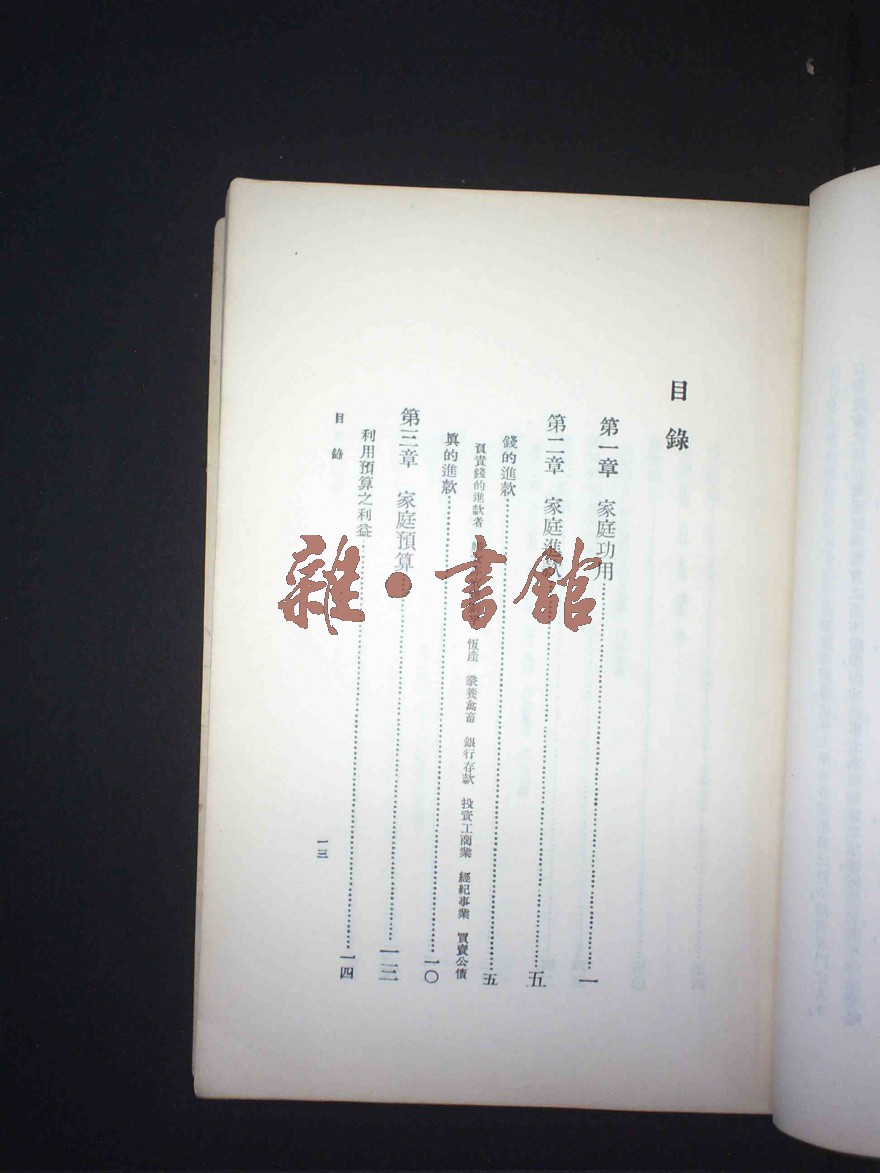 目錄
第一章 家庭功用 一
第二章 家庭進款 五
錢的進款 五
負責錢的進款者 恆產 豢養禽畜 銀行存款 投資工商業 經紀事業 買賣公債
眞的進款 一〇
第三章 家庭預算 一三
利用預算之利益 一四
目錄
一三
雜·書館